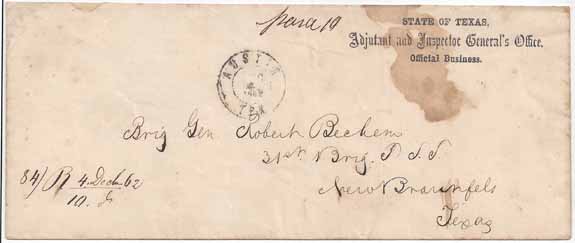 Para 10
STATE OF TEXAS,
Adjutant and Inspector General's Office.
Official Business.
AUSTIN
TEX
Brig Gen Robert Bechem
31st Brig. T. S. T.
New Braunfels
Texas
84/ R 4. Dech. 62
10.